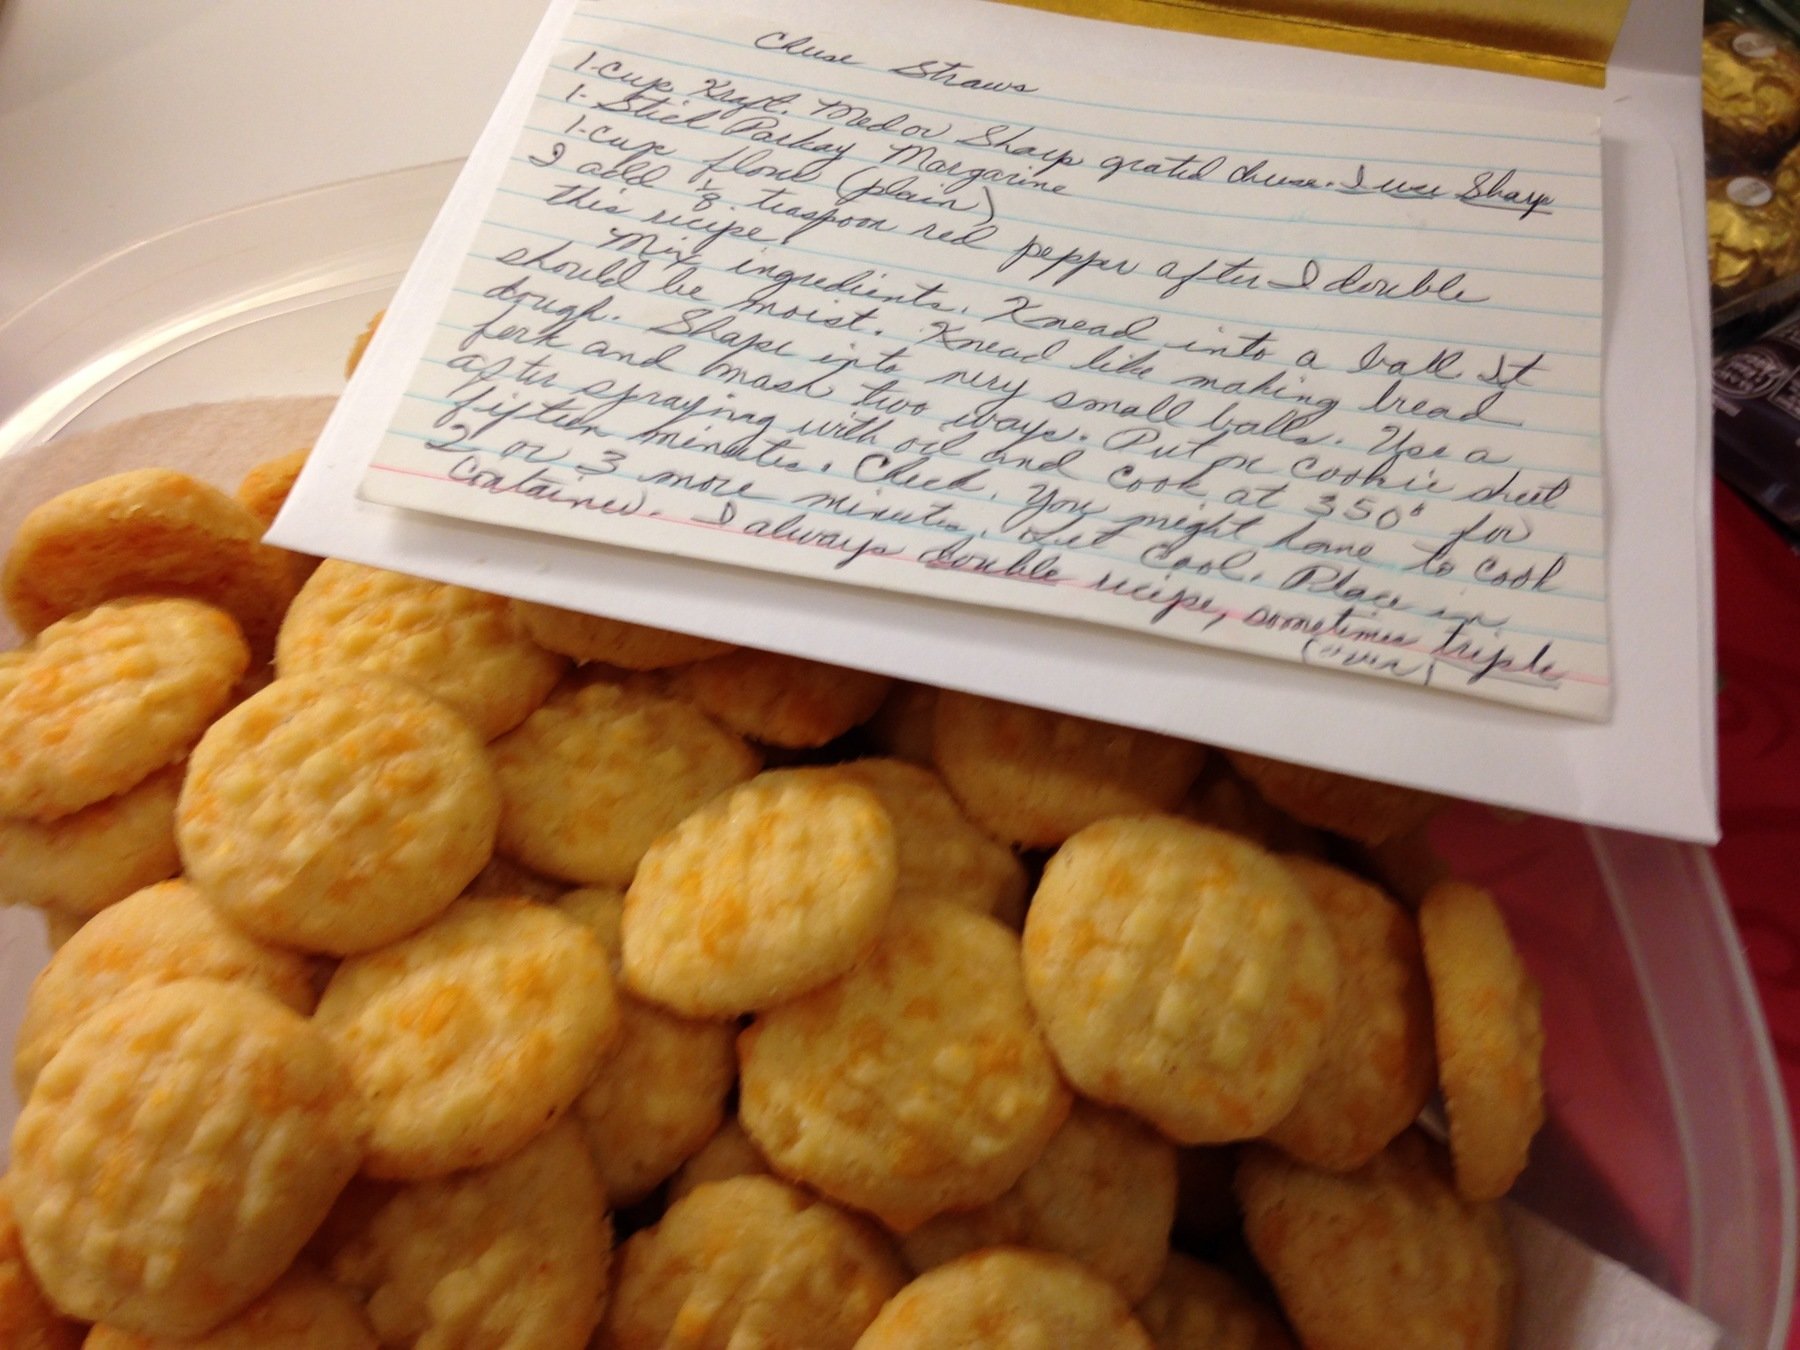 Cheese Straws
1-cup Kraft. Med or Sharp grated cheese. I use Sharp
1-Stick Parkay Margarine
1-cup flour (plain)
I add 1/8 teaspoon red pepper after I double
this recipe.
Mix ingredients. Knead into a ball It
should be moist. Knead like making bread
dough. Shape into very small balls. Use a
fork and mash two ways. Put on cookie sheet
after spraying with oil and cook at 350° for
fifteen minutes. Check. You might have to cook
2 or 3 more minutes. Let Cool. Place in
container. I always double recipe, sometimes triple
(over)